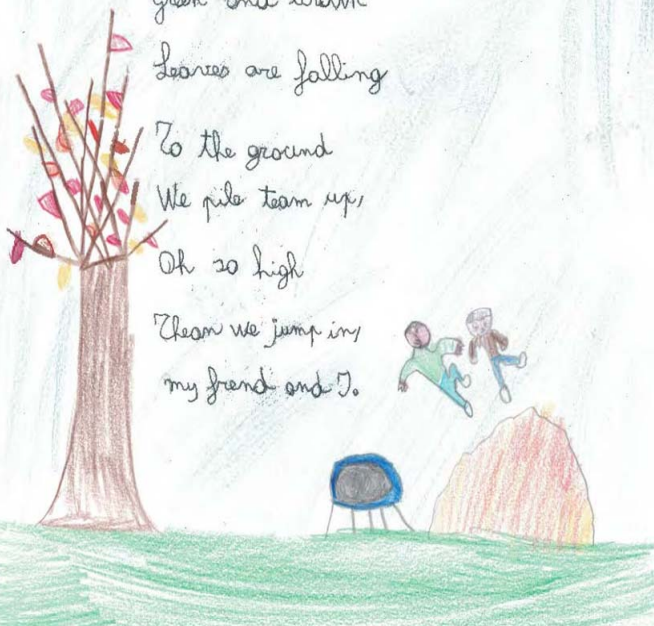 green and brown
Leaves are falling
To the ground
We pile team up,
Oh so high
Thean we jump in,
my frend and I.